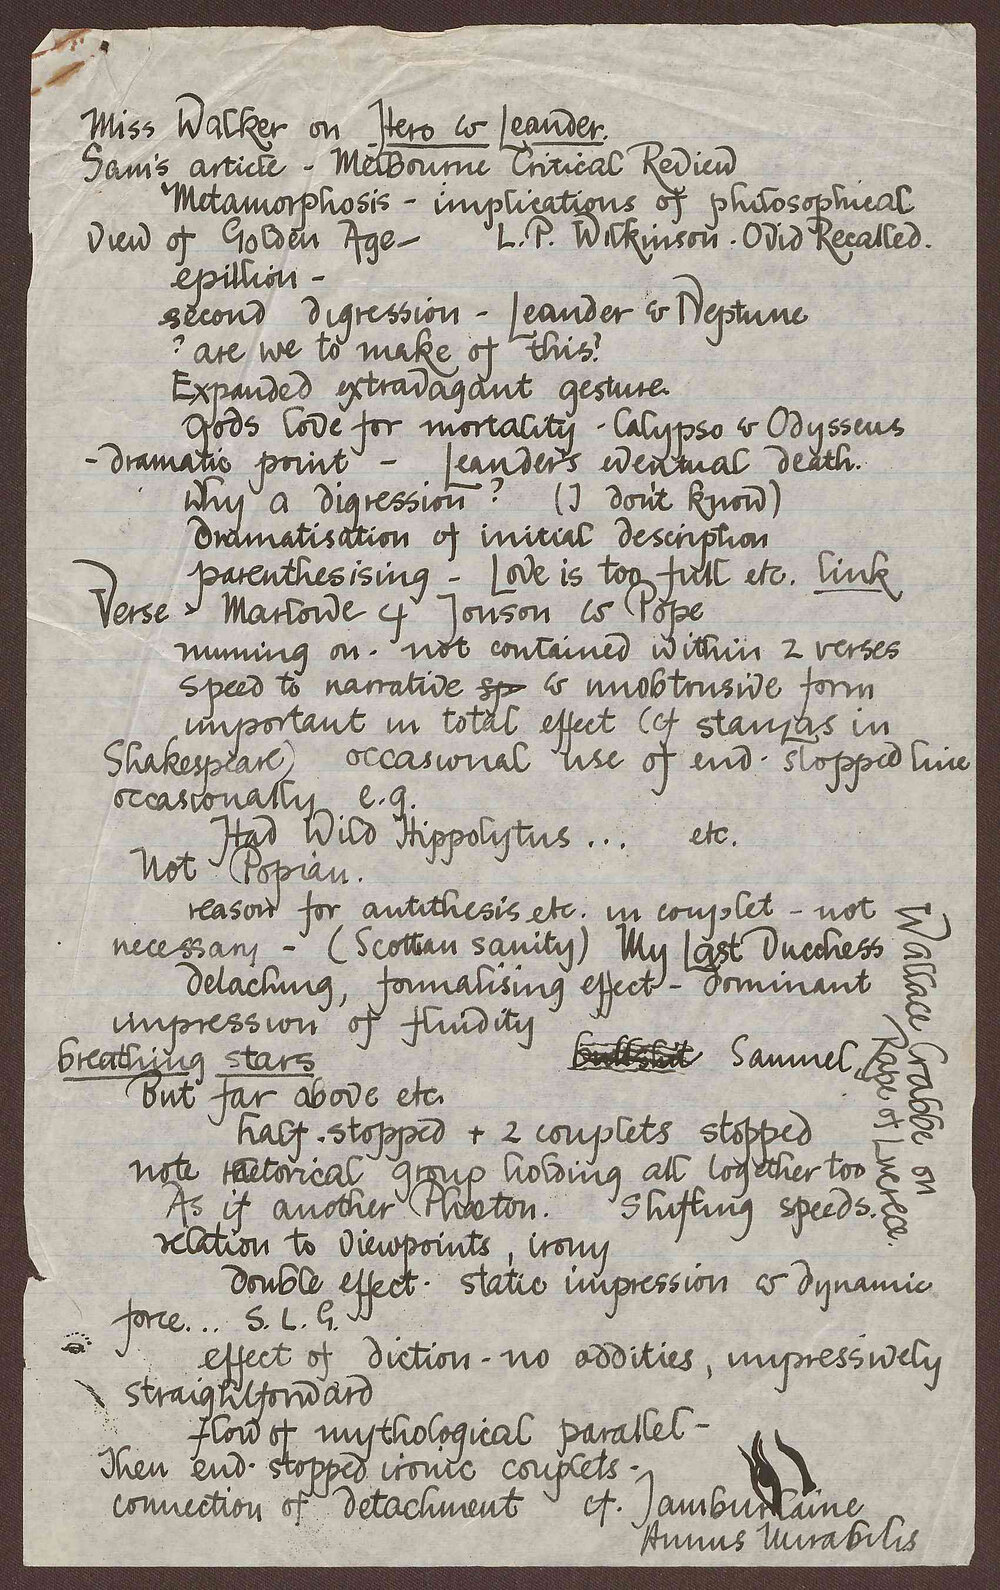 Miss Walker on Hero & Leander.
Sam's article - Melbourne Critical Review
Metamorphosis - implications of philosophical
view of Golden Age - L.P. Wilkinson. Ovid Recalled.
epillion -
second digression - Leander & Neptune
? are we to make of this?
Expanded extravagant gesture.
Gods love for mortality - Calypso & Odysseus
- dramatic point - Leander's eventual death.
Why a digression? (I don't know)
Dramatisation of initial description
parenthesising - Love is too full etc. link
Verse > Marlowe 4 Jonson & Pope
running on - not contained within 2 verses
speed to narrative sp & unobtrusive form
important in total effect (cf stanzas in
Shakespeare) occasional use of end-stopped line
occasionally e.g.
Had Wild Hippolytus ... etc.
Not Popian.
reason for antithesis etc. in couplet - not
necessary - (Scottan sanity) My Last Ducchess
detaching, formalising effect - dominant
impression of fluidity
breathing stars bullshit Samuel,
But far above etc.
half-stopped + 2 couplets stopped
note rhetorical group holding all together too
As if another Phaeton. Shifting speeds.
relation to viewpoints, irony
double effect. static impression & dynamic
force... S.L.G.
effect of diction - no oddities, impressively
straightforward
flow of mythological parallel -
Then end-stopped ironic couplets -
connection of detachment cf. Tamburlaine
Annus Mirabilis
Wallace Crabbe on
Rape of Lucrece.